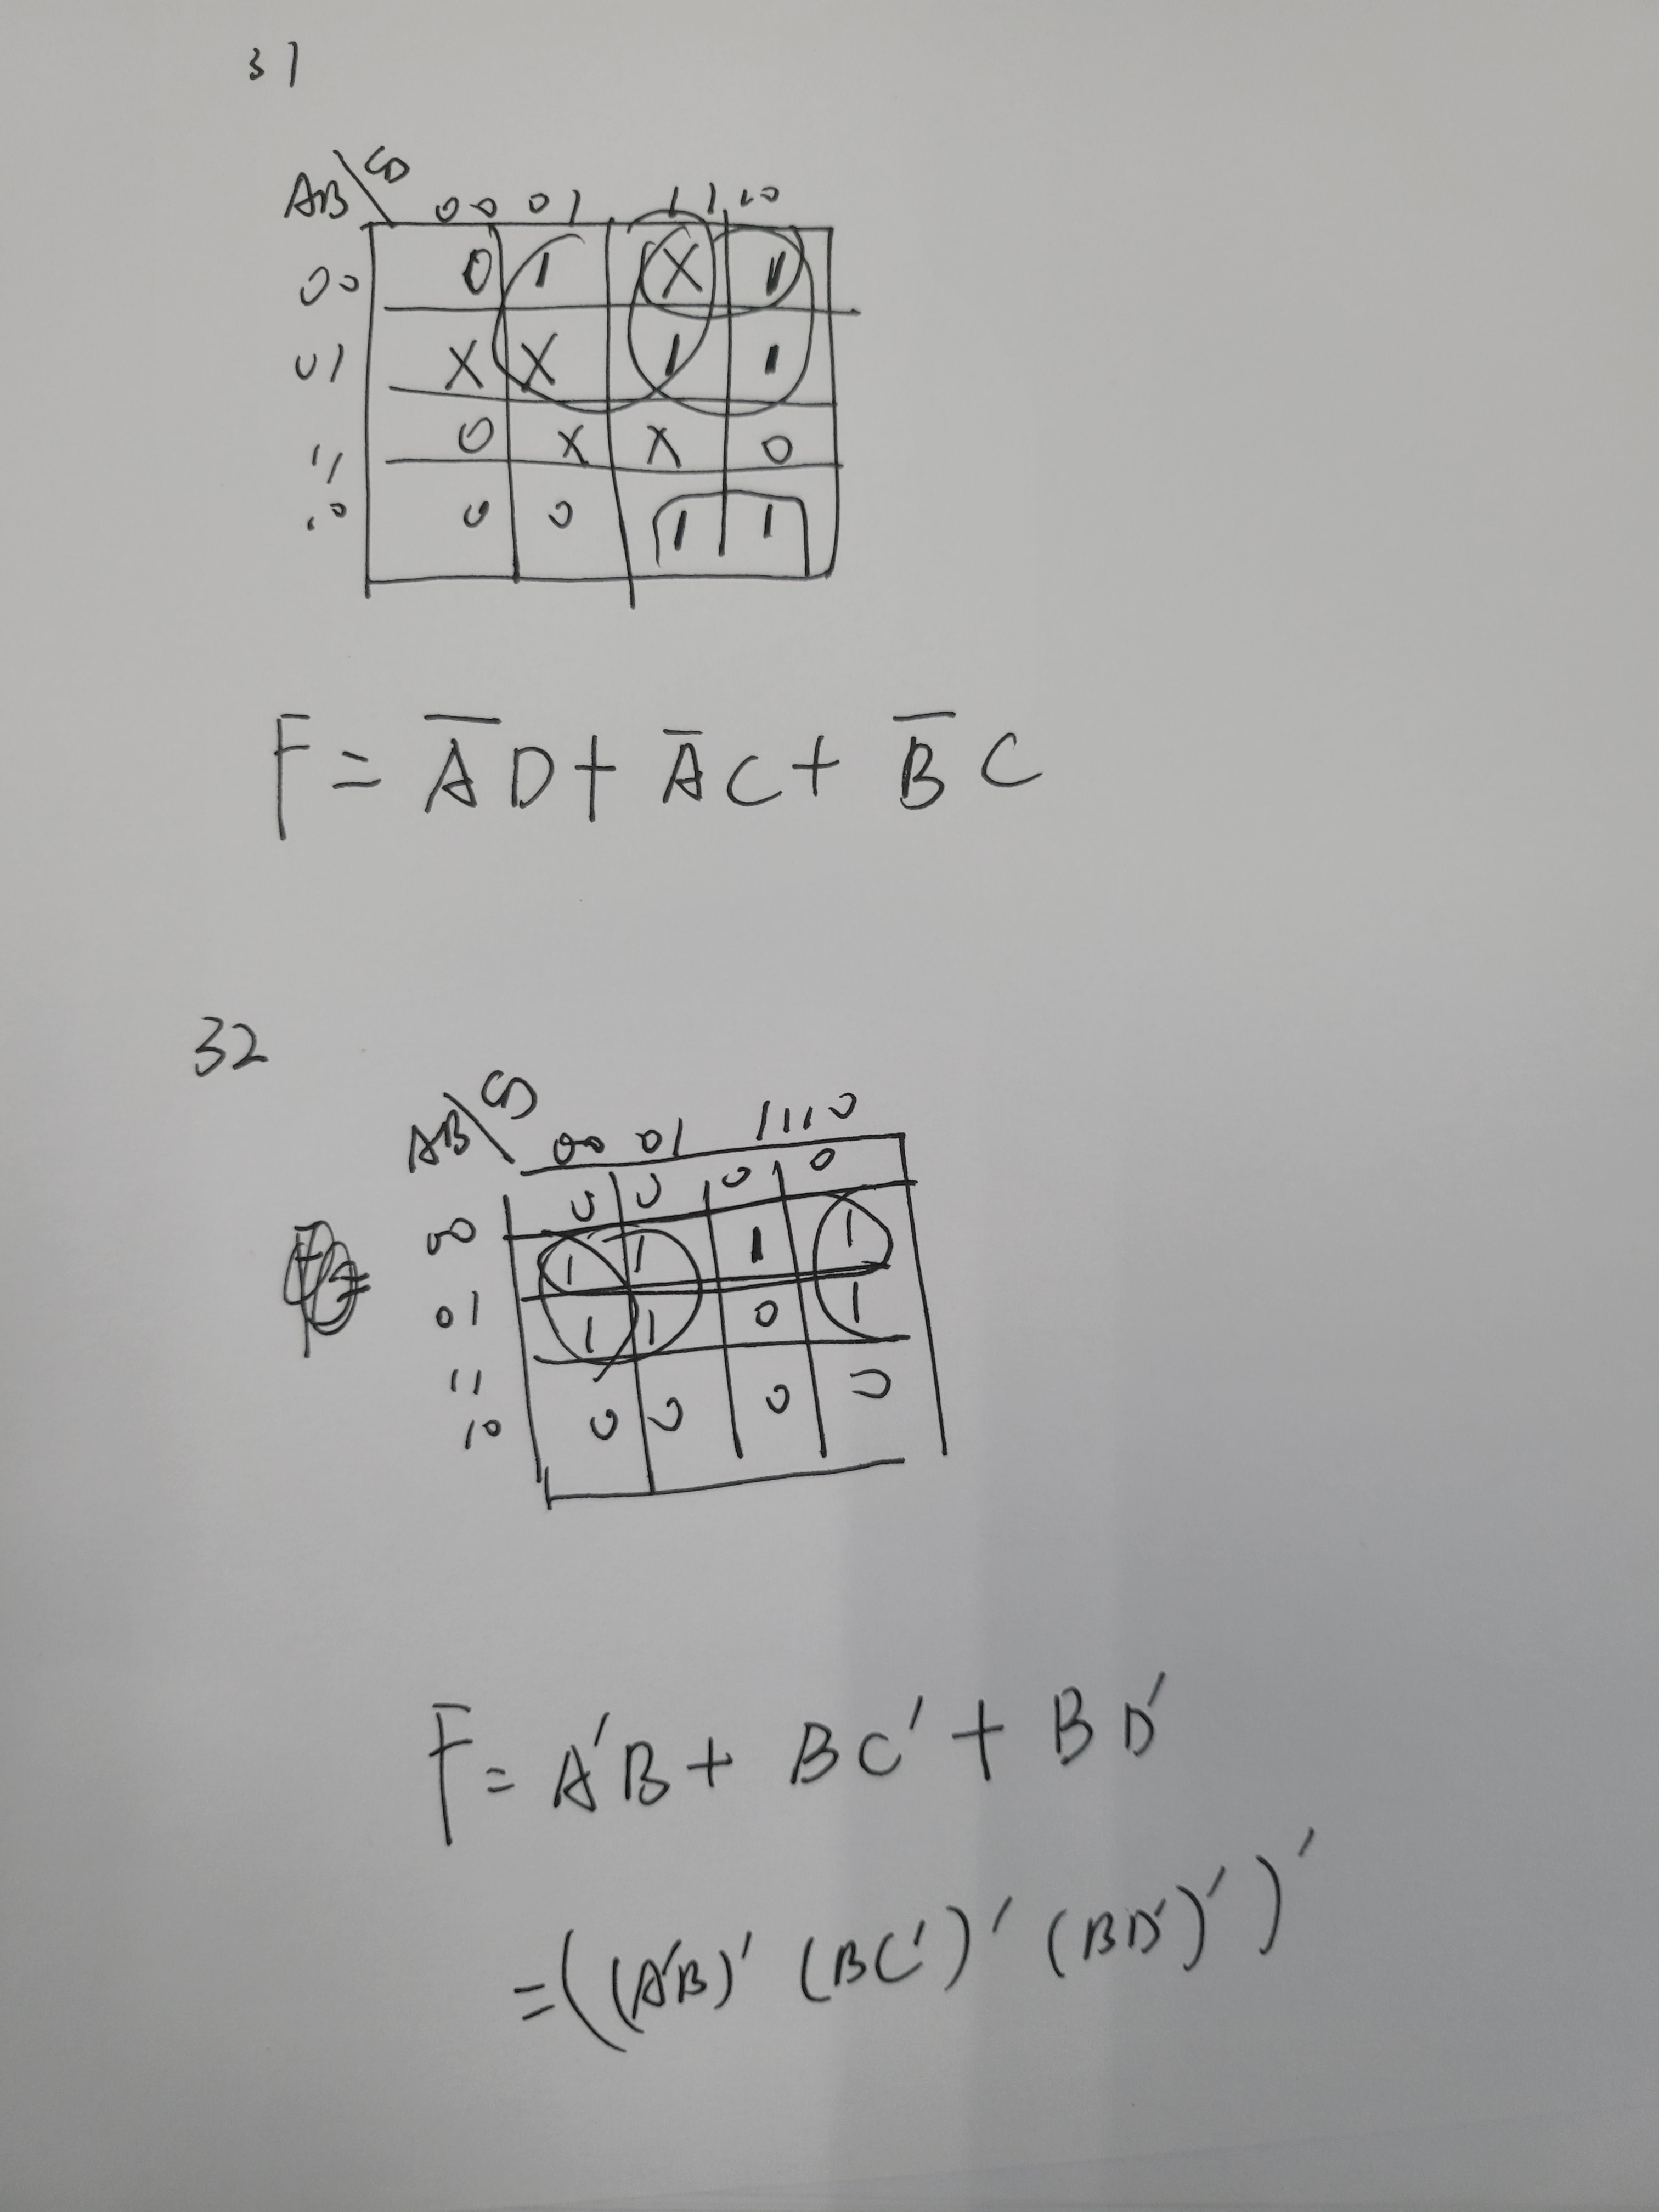 31
AB\CD 00 01 11 10
00 0 1 X 1
01 X X 1 1
11 0 X X 0
10 0 0 1 1
F = A̅D + A̅C + B̅C
32
AB\CD 00 01 11 10
00 0 0 0 0
01 1 1 1 1
11 1 1 0 1
10 0 0 0 0
F = A'B + BC' + BD'
= ((A'B)' (BC')' (BD')')'